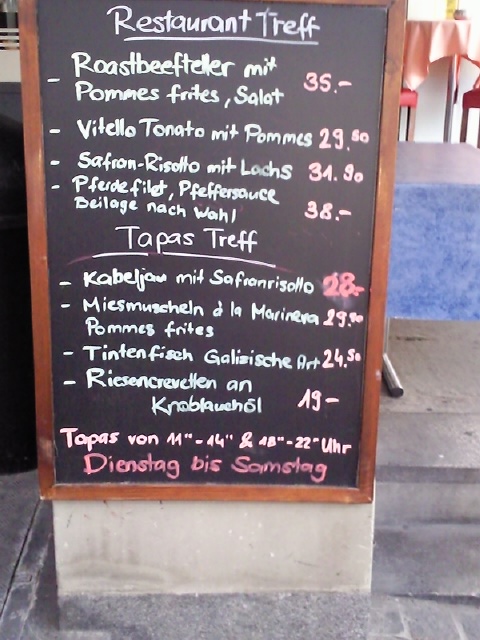 Restaurant Treff
- Roastbeefteller mit
Pommes frites, Salat 35.-
- Vitello Tonato mit Pommes 29.50
- Safran-Risotto mit Lachs 31.90
- Pferdefilet, Pfeffersauce
Beilage nach Wahl 38.-
Tapas Treff
- Kabeljau mit Safranrisotto 28.-
- Miesmuscheln à la Marinera 29.50
Pommes frites
- Tintenfisch Galizische Art 24.50
- Riesencrevetten an
Knoblauchöl 19-
Tapas von 11°°-14°° & 18°°-22°° Uhr
Dienstag bis Samstag